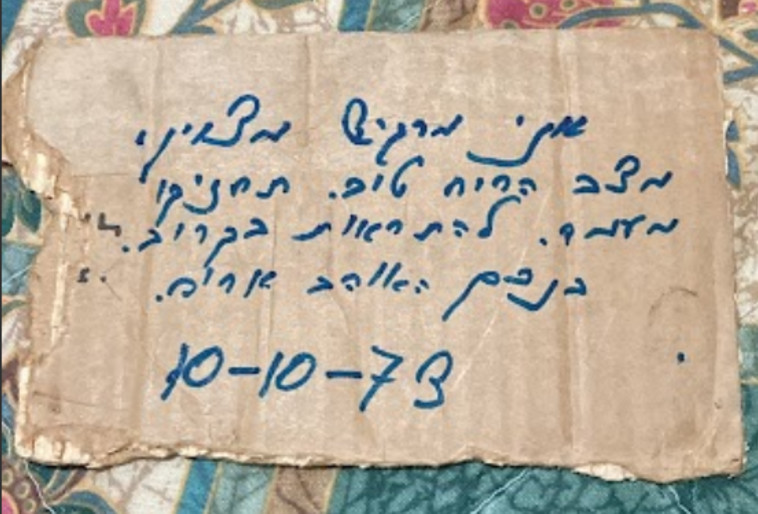 אני מרגיש מצוין,
מצב הרוח טוב. תחזיקו
מעמד. להתראות בקרוב.
בנכם האוהב
10-10-73